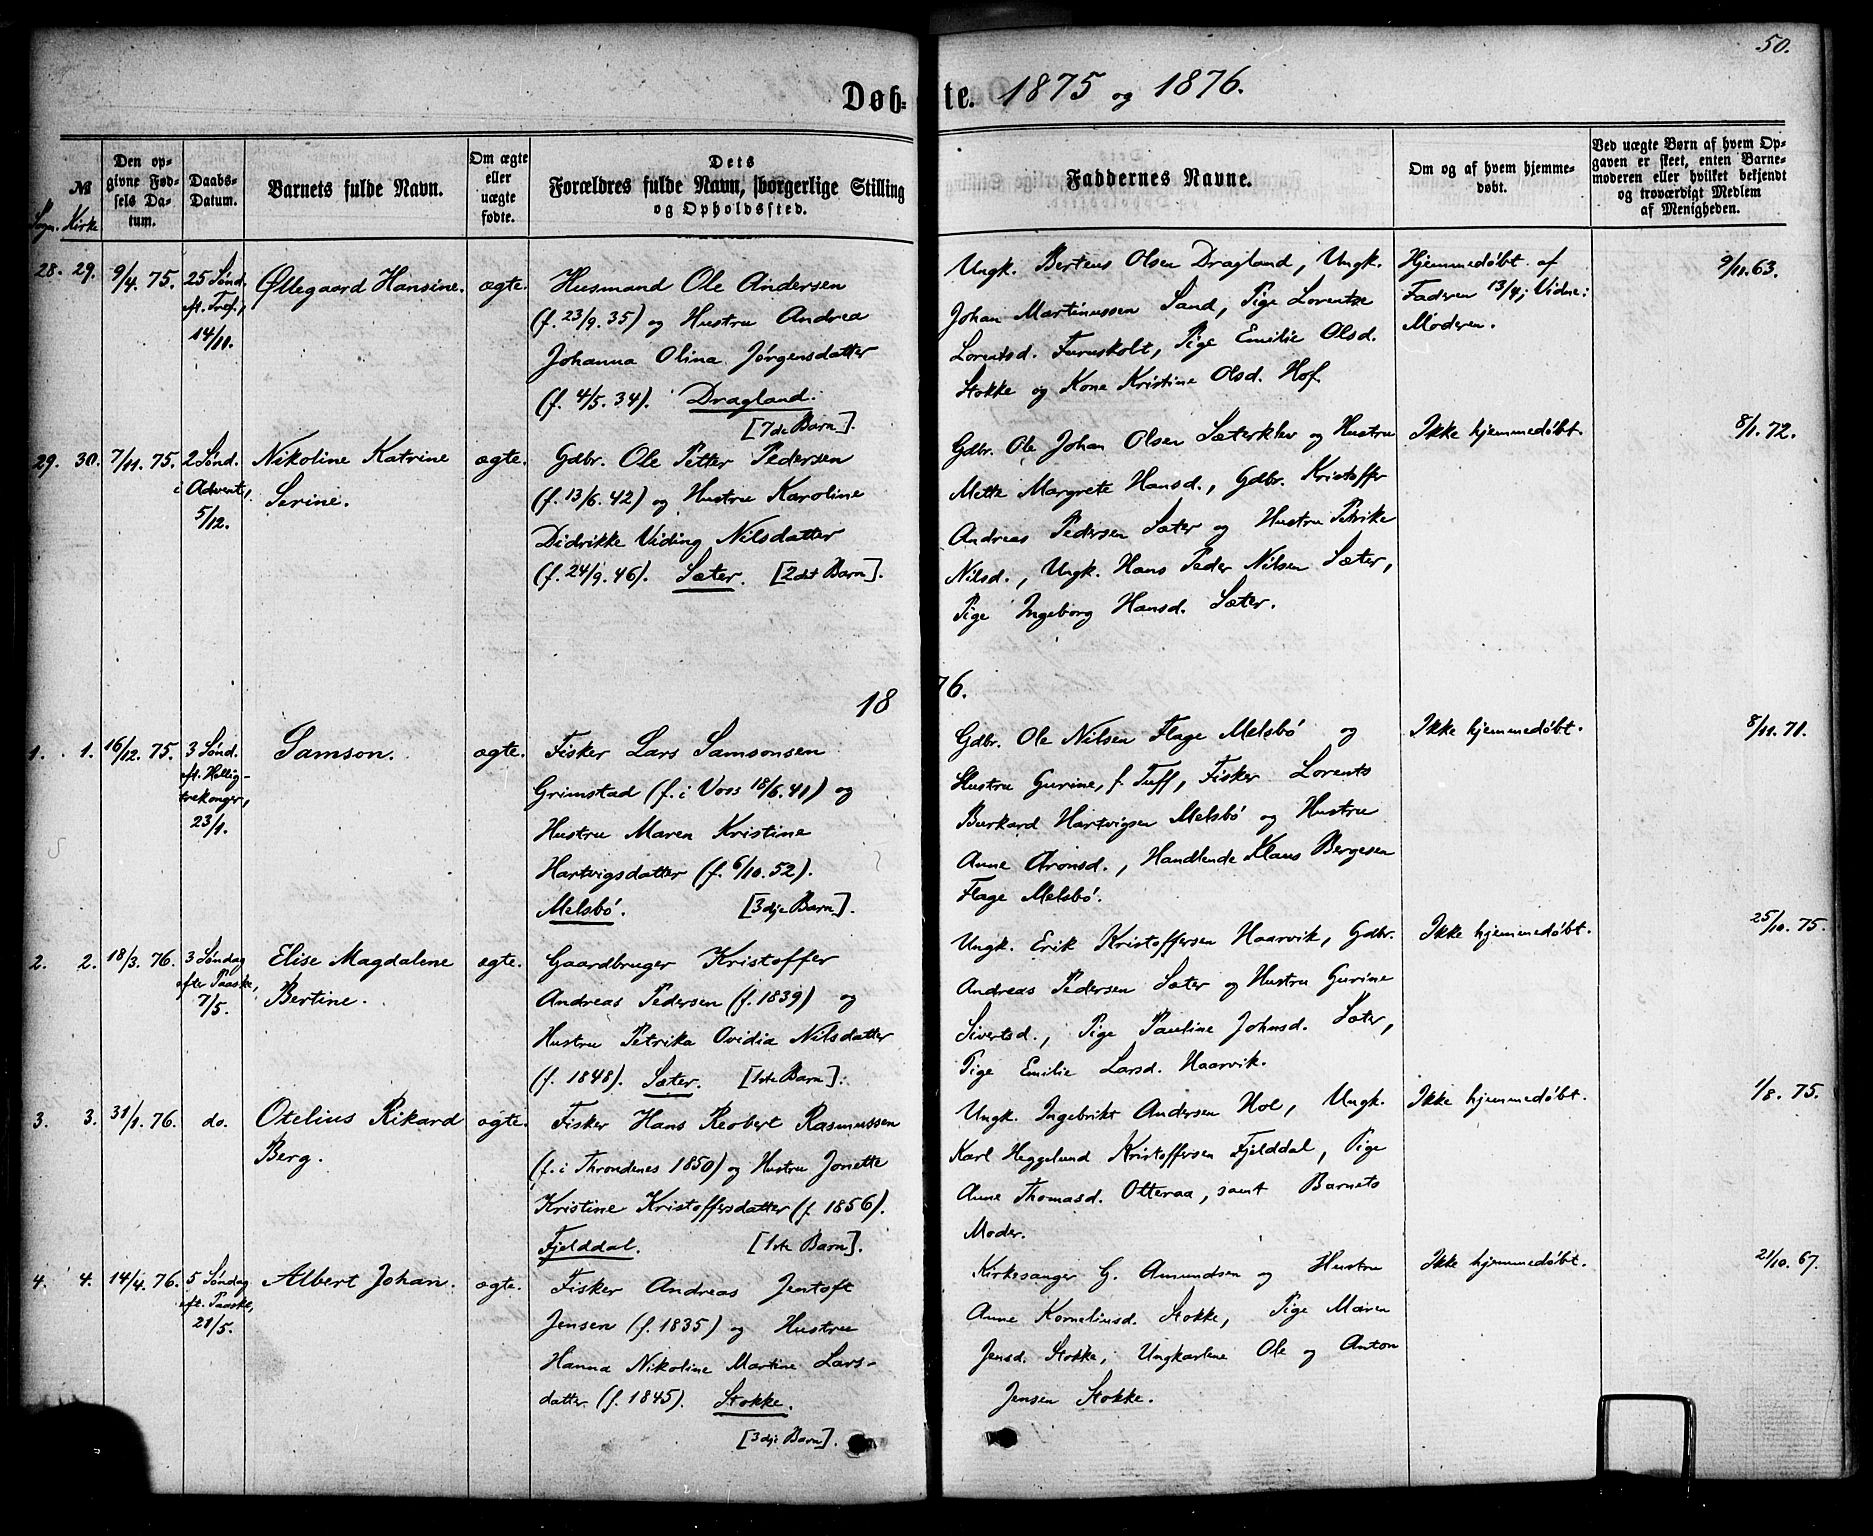 50.
Døb-te. 1875 og 1876.
№
Sogn. Kirke
Den op-
givne Fød-
sels Da-
tum.
Daabs-
Datum.
Barnets fulde Navn.
Om ægte
eller
uægte
fødte.
Dets
Forældres fulde Navn, borgerlige Stilling
og Opholdssted.
Faddernes Navne.
Om og af hvem hjemme-
døbt.
Ved uægte Børn af hvem Op-
gaven er skeet, enten Barne-
moderen eller hvilket bekjendt
og troværdigt Medlem
af Menigheden.
28. 29. 9/4. 75.
25 Sønd.
eft. Tref.,
14/11.
Øllegaard Hansine.
ægte.
Husmand Ole Andersen
(f. 23/9. 35) og Hustru Andrea
Johanna Olina Jørgensdatter
(f. 4/5. 34). Dragland.
[7de Barn].
Ungk. Bertens Olsen Dragland, Ungk.
Johan Martinussen Sand, Pige Lorentze
Lorentsd. Furuskolt, Pige Emilie Olsd.
Stokke og Kone Kristine Olsd. Hof
Hjemmedøbt af
Faderen 13/4; Vidne:
Moderen.
9/11. 63.
29. 30. 7/11. 75.
2 Sønd.
i Advent,
5/12.
Nikoline Katrine
Serine.
ægte.
Gdbr. Ole Petter Pedersen
(f. 13/6. 42) og Hustru Karoline
Didrikke Viding Nilsdatter
(f. 24/9. 46). Sæter. [2det Barn].
Gdbr. Ole Johan Olsen Sæterklev og Hustru
Mette Margrete Hansd., Gdbr. Kristoffer
Andreas Pedersen Sæter og Hustru Petrike
Nilsd., Ungk. Hans Peder Nilsen Sæter,
Pige Ingeborg Hansd. Sæter.
Ikke hjemmedøbt.
8/1. 72.
1876.
1. 1. 16/12. 75.
3 Sønd.
eft. Hellig-
trekonger,
23/1.
Samson.
ægte.
Fisker Lars Samsonsen
Grimstad (f. i Voss 18/6. 41) og
Hustru Maren Kristine
Hartvigsdatter (f. 6/10. 52).
Melsbö. [3dje Barn].
Gdbr. Ole Nilsen Flage Melsbö og
Hustru Gurine, f. Tuff, Fisker Lorents
Burkard Hartvigsen Melsbö og Hustru
Anne Aronsd., Handlende Klaus Bergesen
Flage Melsbö.
Ikke hjemmedøbt.
8/11. 71.
2. 2. 18/3. 76.
3 Søndag
efter Paaske,
7/5.
Elise Magdalene
Bertine.
ægte.
Gaardbruger Kristoffer
Andreas Pedersen (f. 1839) og
Hustru Petrika Ovidia Nilsdatter
(f. 1848). Sæter. [1ste Barn].
Ungk. Erik Kristoffersen Haarvik, Gdbr.
Andreas Pedersen Sæter og Hustru Gurine
Sivertsd., Pige Pauline Johnsd. Sæter,
Pige Emilie Larsd. Haarvik.
Ikke hjemmedøbt.
25/10. 75.
3. 3. 31/1. 76.
do.
Otelius Rikard
Berg.
ægte.
Fisker Hans Reobert Rasmussen
(f. i Throndenes 1850) og Hustru Jonette
Kristine Kristoffersdatter (f. 1856).
Fjelddal. [1ste Barn].
Ungk. Ingebrikt Andersen Hol, Ungk.
Karl Heggelund Kristoffersen Fjelddal, Pige
Anne Thomasd. Otteraa, samt Barnets
Moder.
Ikke hjemmedøbt.
1/8. 75.
4. 4. 14/4. 76.
5 Søndag
eft. Paaske,
21/5.
Albert Johan.
ægte.
Fisker Andreas Jentoft
Jensen (f. 1835) og Hustru
Hanna Nikoline Martine Lars-
datter (f. 1845). Stokke.
[3dje Barn].
Kirkesanger G. Amundsen og Hustru
Anne Korneliusd. Stokke, Pige Maren
Jensd. Stokke, Ungkarlene Ole og Anton
Jensen Stokke.
Ikke hjemmedøbt.
21/10. 67.